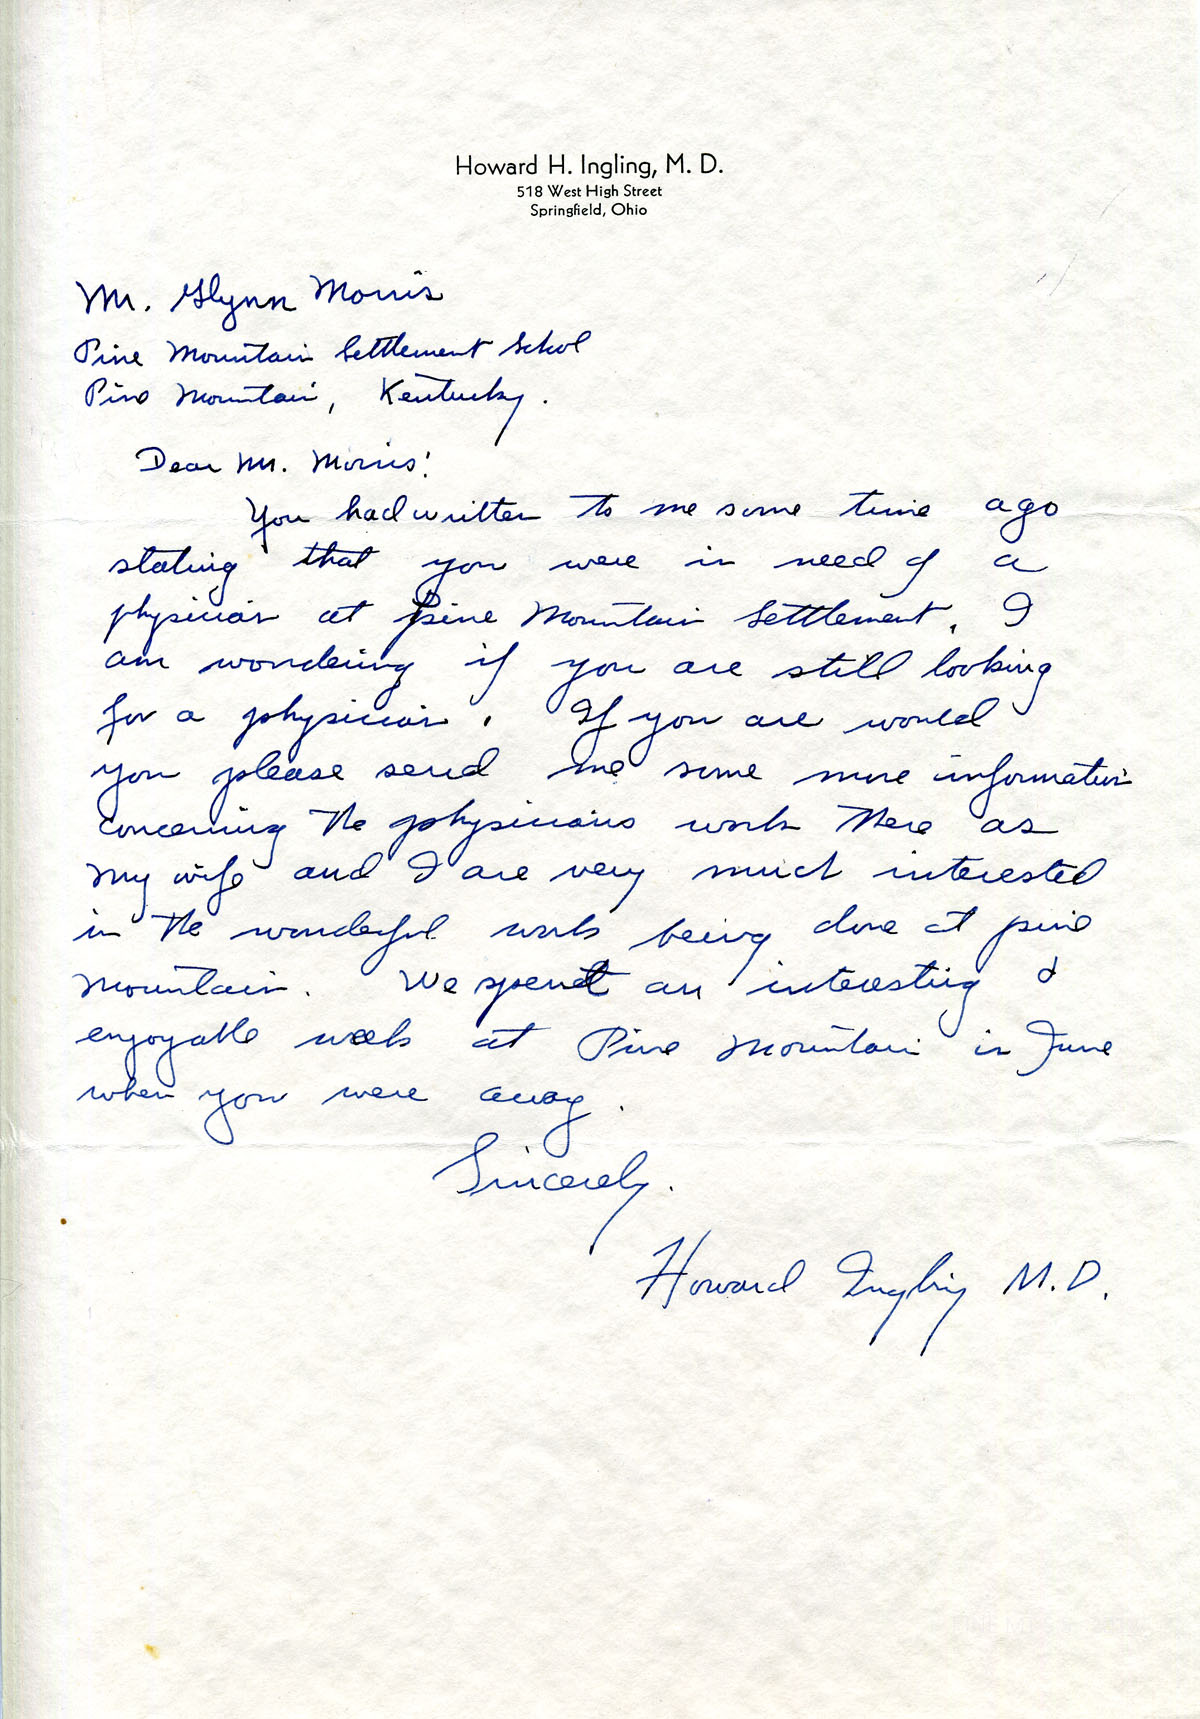 Howard H. Ingling, M. D.
518 West High Street
Springfield, Ohio
Mr. Glynn Morris
Pine Mountain Settlement School
Pine Mountain, Kentucky.
Dear Mr. Morris:
You had written to me some time ago
stating that you were in need of a
physician at Pine Mountain Settlement. I
am wondering if you are still looking
for a physician. If you are would
you please send me some more information
concerning the physicians work there as
my wife and I are very much interested
in the wonderful work being done at pine
mountain. We spent an interesting &
enjoyable week at Pine Mountain in June
when you were away.
Sincerely.
Howard Ingling M.D.